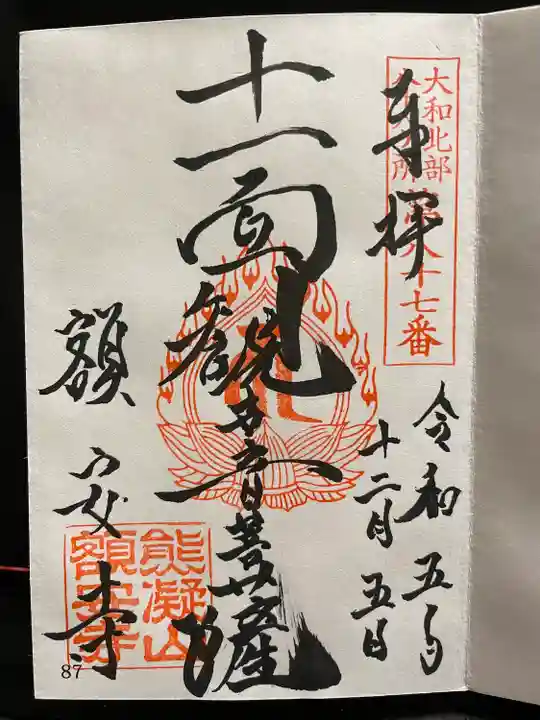 奉拝
大和北部
八十七番
令和五年
十二月五日
十一面観世音菩薩
額安寺
熊凝山
額安寺
87